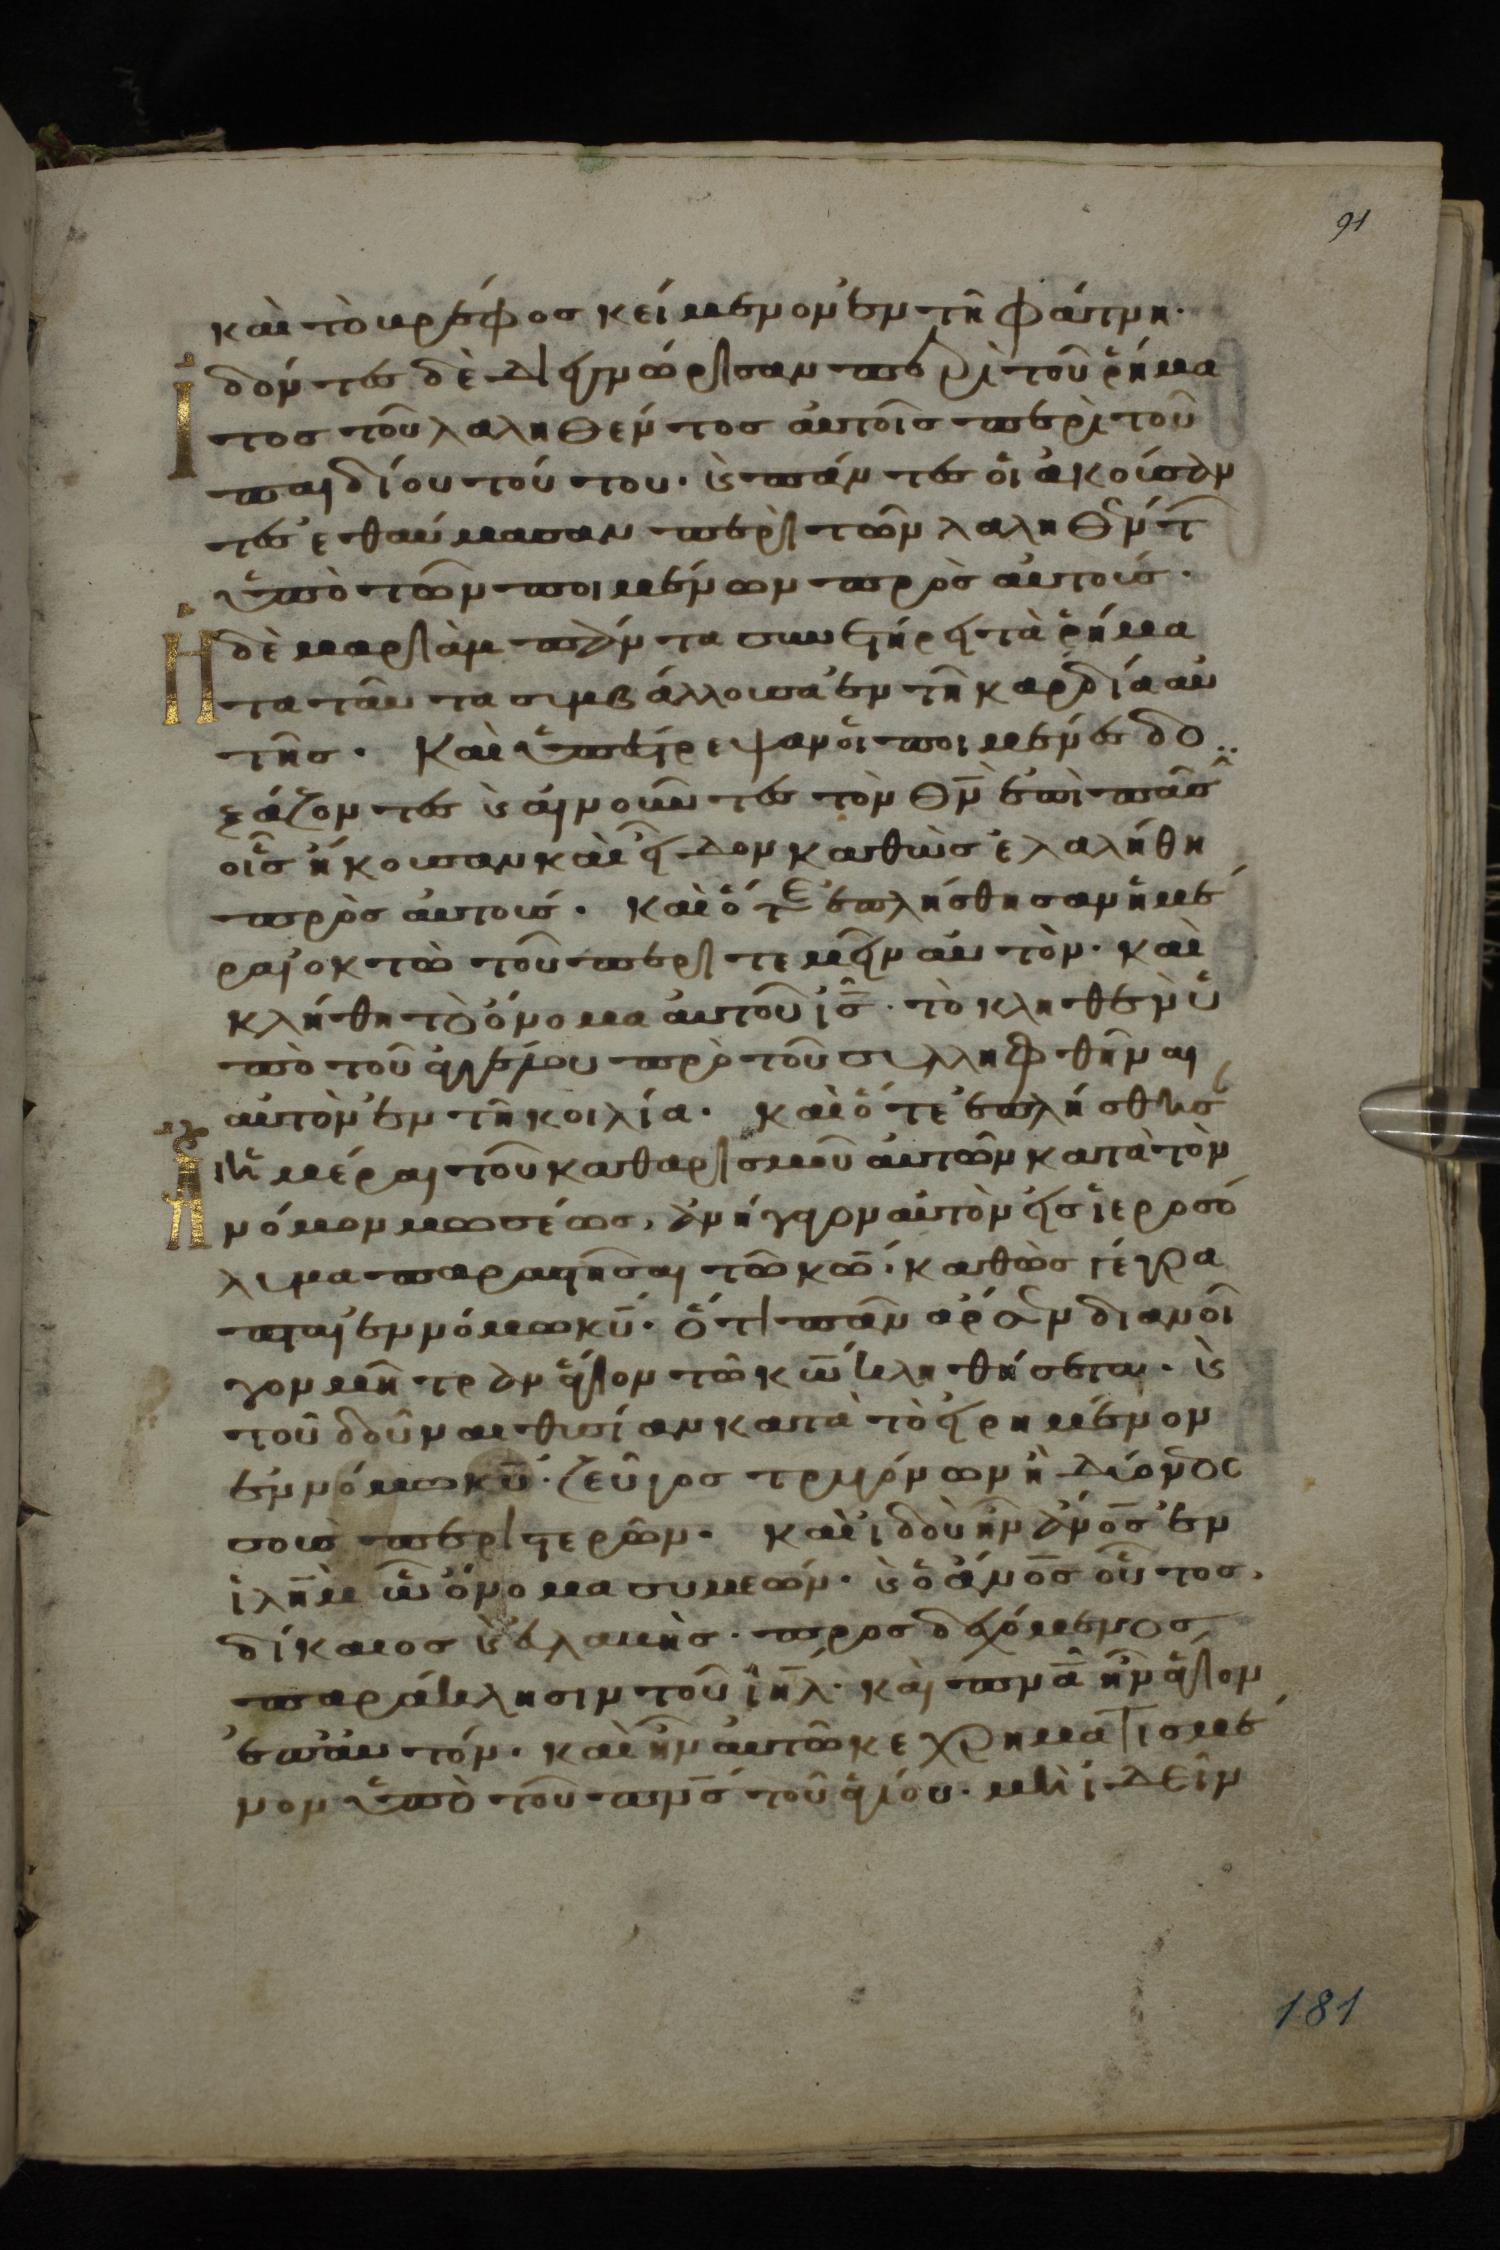 91
καὶ τὸ βρέφος κείμενον ἐν τῆ φάτνη·
Ἰδόντες δὲ διεγνώρισαν περὶ τοῦ ῥήμα
τος τοῦ λαληθέντος αὐτοῖς περὶ τοῦ
παιδίου τούτου· καὶ πάντες οἱ ἀκούσαν
τες ἐθαύμασαν περὶ τῶν λαληθέντ
ὑπὸ τῶν ποιμένων πρὸς αὐτούς·
Ἡ δὲ μαριὰμ πάντα συνετήρει τὰ ῥήμα
τα ταῦτα συμβάλλουσα ἐν τῆ καρδία αὐ
τῆς· Καὶ ὑπέστρεψαν οἱ ποιμένες δο
ξάζοντες καὶ αἰνοῦντες τὸν θν ἐπὶ πᾶσ
οἷς ἤκουσαν καὶ εἶδον καθὼς ἐλαλήθη
πρὸς αὐτούς· Καὶ ὅτε ἐπλήσθησαν ἡμέ
ραι ὀκτὼ τοῦ περιτεμεῖν αὐτὸν· καὶ
ἐκλήθη τὸ ὄνομα αὐτοῦ ις· τὸ κληθὲν ὑ
πὸ τοῦ ἀγγέλου πρὸ τοῦ συλληφθῆναι
αὐτὸν ἐν τῆ κοιλία· Καὶ ὅτε ἐπλήσθησ
αἱ ἡμέραι τοῦ καθαρισμοῦ αὐτῶν κατὰ τὸν
νόμον μωσέως, ἀνήγαγον αὐτὸν εἰς ἱεροσό
λυμα παραστῆσαι τῶ κω· καθὼς γέγρα
πται ἐν νόμω κυ· ὅτι πᾶν ἄρσεν διανοῖ
γον μήτραν ἅγιον τῶ κω κληθήσεται· καὶ
τοῦ δοῦναι θυσίαν κατὰ τὸ εἰρημένον
ἐν νόμω κυ· ζεῦγος τρυγόνων ἢ δύο νεοσ
σοὺς περιστερῶν· Καὶ ἰδοὺ ἦν ἄνος ἐν
ιλημ ὧ ὄνομα συμεών· καὶ ὁ ἄνος οὗτος,
δίκαιος καὶ εὐλαβὴς· προσδεχόμενος
παράκλησιν τοῦ ιηλ· καὶ πνα ἦν ἅγιον
ἐπ' αὐτόν· καὶ ἦν αὐτῶ κεχρηματισμέ
νον ὑπὸ τοῦ πνς τοῦ ἁγίου· μὴ ἰδεῖν
181